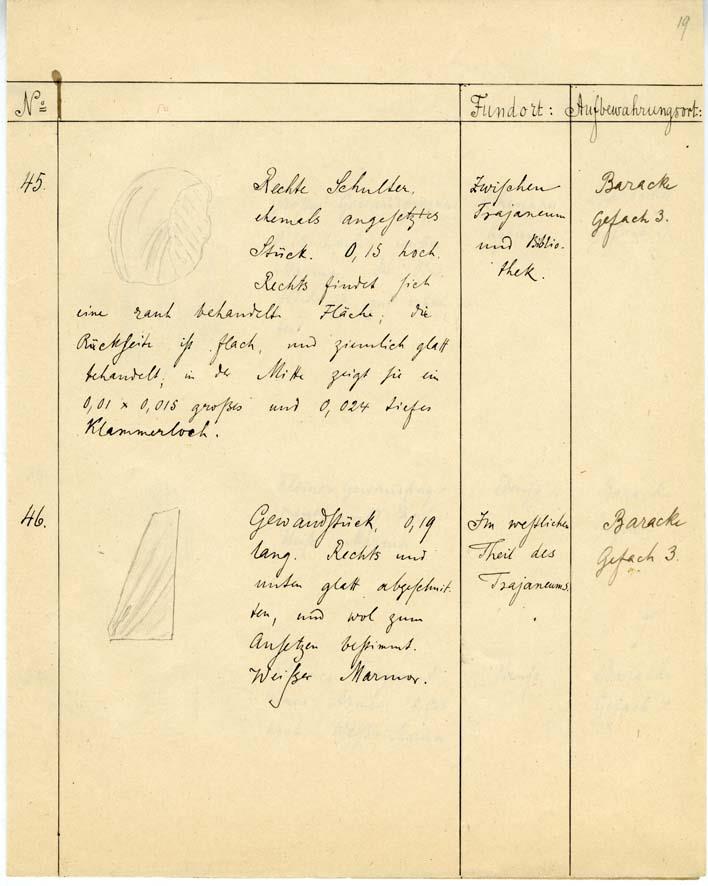 19
No Fundort: Aufbewahrungsort:
45. Rechte Schulter, Zwischen Baracke
ehemals angesetztes Trajaneum Gefach 3.
Stück. 0,15 hoch. und Biblio-
Rechts findet sich thek.
eine rauh behandelte Fläche; die
Rückseite ist flach, und ziemlich glatt
behandelt; in der Mitte zeigt sie ein
0,01 x 0,015 großes und 0,024 tiefes
Klammerloch.
46. Gewandstück, 0,19 Im westlichen Baracke
lang. Rechts und Theil des Gefach 3.
unten glatt abgeschnit- Trajaneums.
ten, und wol zum
Ansetzen bestimmt.
Weißer Marmor.